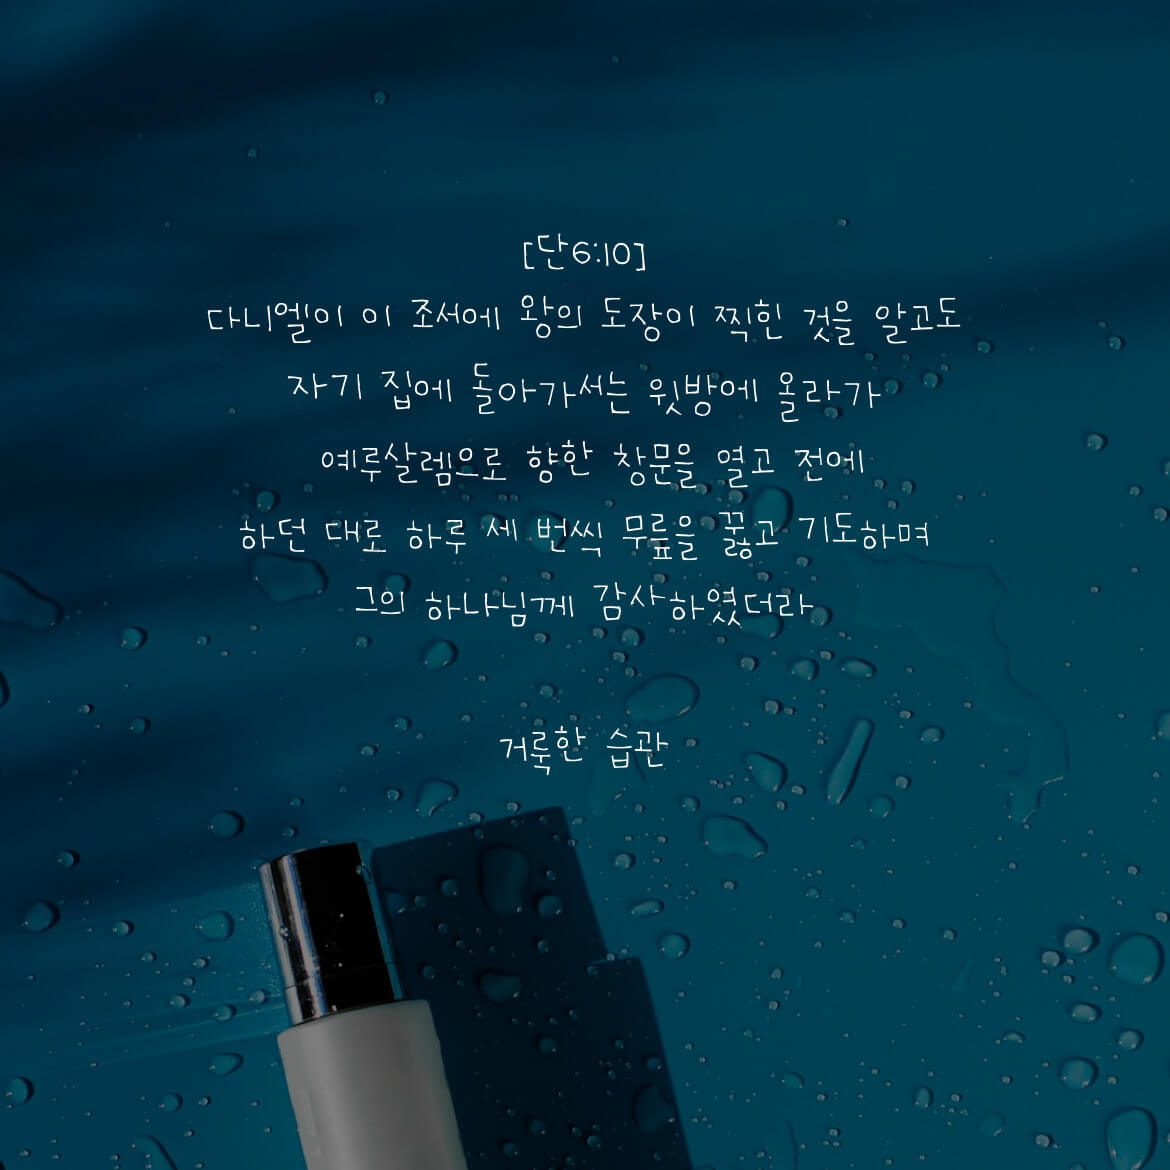 [단6:10]
다니엘이 이 조서에 왕의 도장이 찍힌 것을 알고도
자기 집에 돌아가서는 윗방에 올라가
예루살렘으로 향한 창문을 열고 전에
하던 대로 하루 세 번씩 무릎을 꿇고 기도하며
그의 하나님께 감사하였더라
거룩한 습관